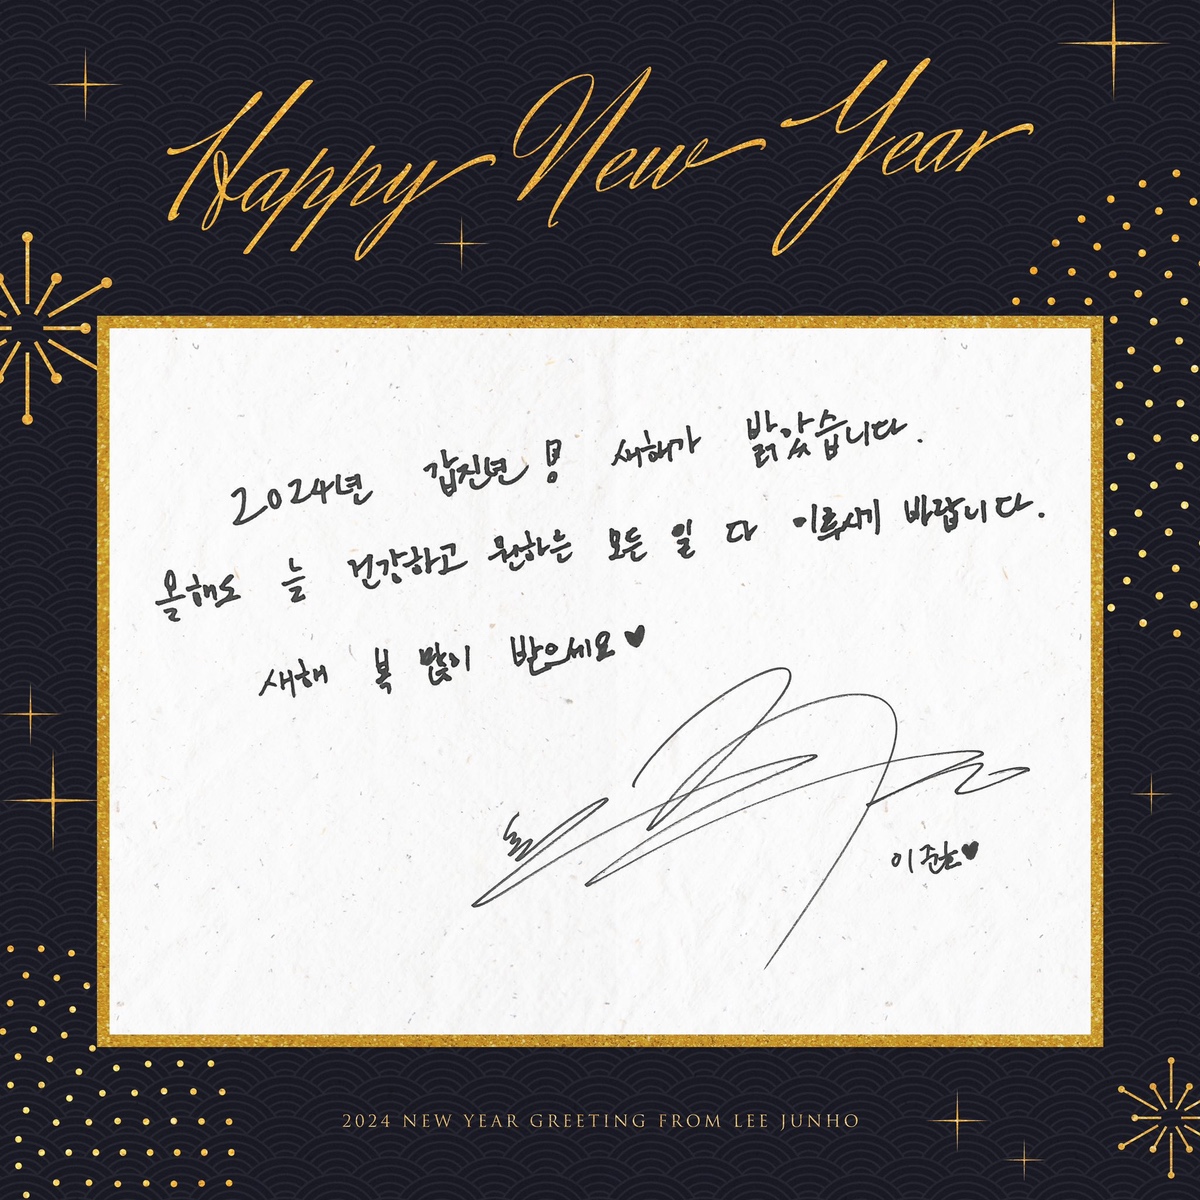 Happy New Year
2024년 갑진년 용 새해가 밝았습니다.
올해도 늘 건강하고 원하는 모든 일 다 이루시길 바랍니다.
새해 복 많이 받으세요♥
이준호♥
2024 NEW YEAR GREETING FROM LEE JUNHO